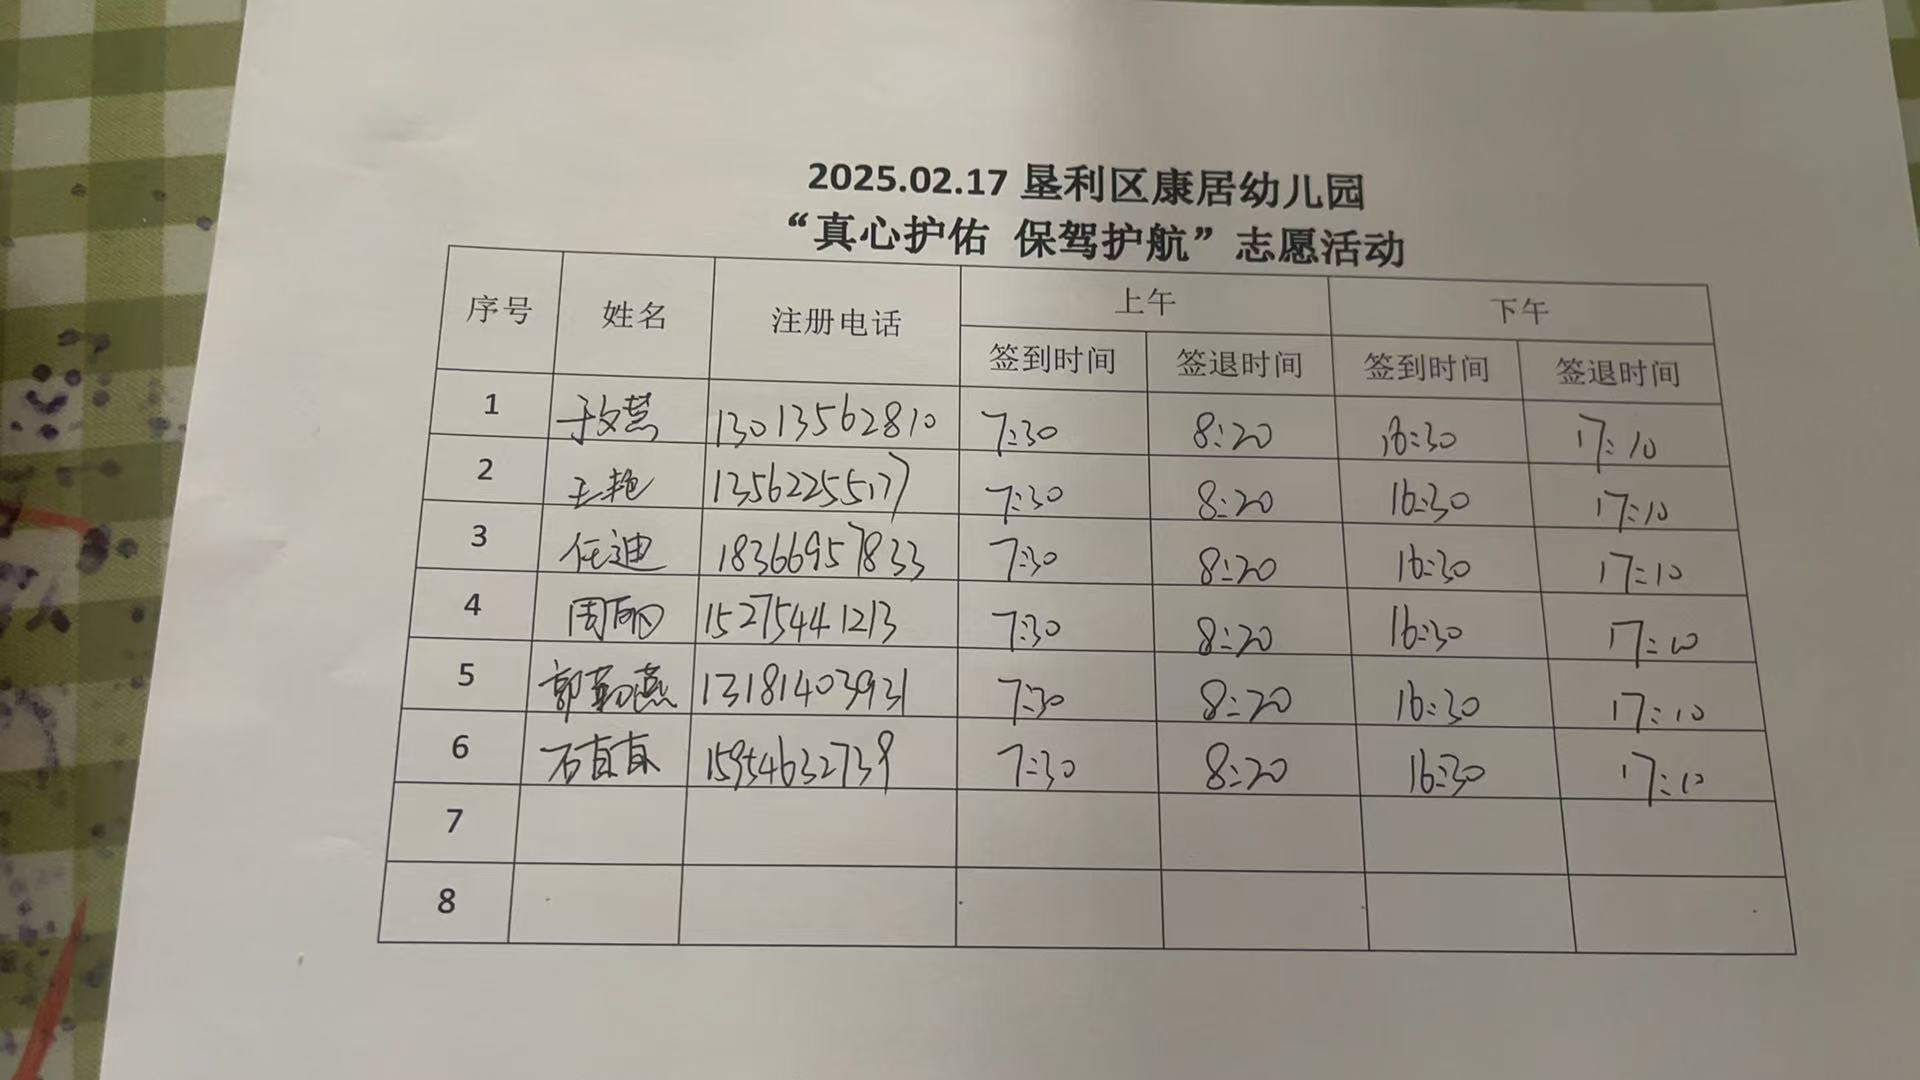 2025.02.17 垦利区康居幼儿园
“真心护佑 保驾护航”志愿活动
序号 姓名 注册电话 上午 下午
签到时间 签退时间 签到时间 签退时间
1 于文慧 13013562810 7:30 8:20 16:30 17:10
2 王艳 13562255177 7:30 8:20 16:30 17:10
3 任迪 18366957833 7:30 8:20 16:30 17:10
4 周丽 15275441213 7:30 8:20 16:30 17:10
5 郭勤燕 13181403931 7:30 8:20 16:30 17:10
6 石真真 15954632739 7:30 8:20 16:30 17:10
7
8